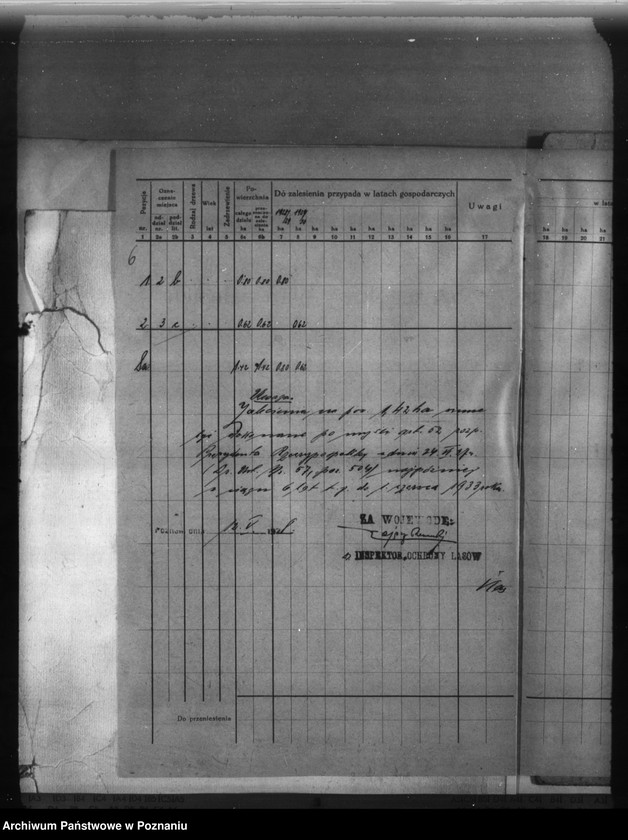 Pozycja
Ozna-
czenie
miejsca
od-
dział
nr.
pod-
dział
lit.
Rodzaj drzewa
Wiek
lat
Zadrzewienie
Po-
wierzchnia
całego
działu
ha
Do zalesienia przypada w latach gospodarczych
ha ha ha ha ha ha ha ha ha ha
Uwagi
w lata
ha ha ha ha
nr.
1 2a 2b 3 4 5 6a 6b 7 8 9 10 11 12 13 14 15 16 17 18 19 20 21
6
1 2 b 0.80 0.80 0.80
2 3 c 0.62 0.62 0.62
Sa 1.42 1.42 0.80 0.62
Uwaga.
Zalesienie na pow. 1,42 ha musi
być dokonane po myśli art. 52 rozp.
Prezydenta Rzeczypospolitej z dnia 24 VI 27r.
(Dz. Ust. Nr. 57, poz. 504) najpóźniej
w ciągu 6 lat t. j. do 1 czerwca 1933 roku.
Poznań dnia 12. V.
ZA WOJEWODĘ:
INSPEKTOR OCHRONY LASÓW
Do przeniesienia
Archiwum Państwowe w Poznaniu